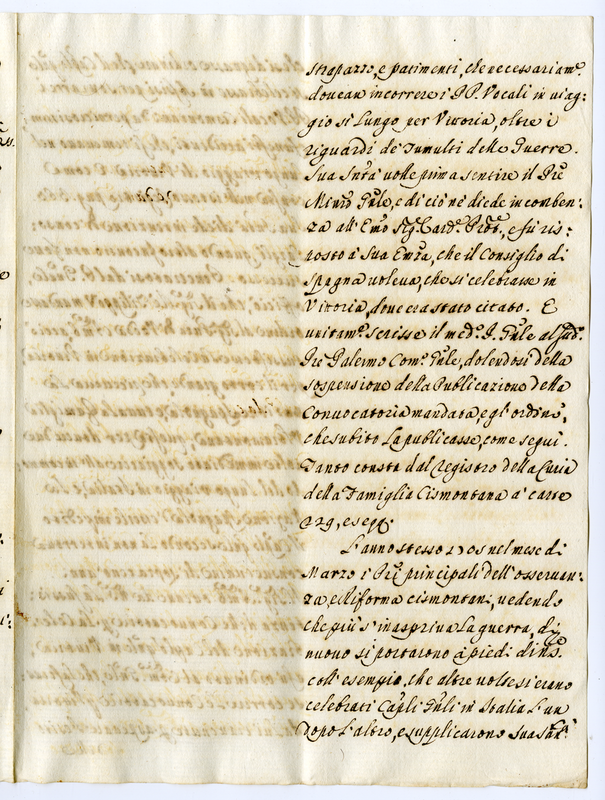 strapazzo, e patimenti, che necessariam.e
doucan incorrere i PP. Vocali in uiag=
gio si Lungo per Vittoria, oltre i
riguardi de' Tumulti delle Guerre.
Sua Sntà uolle prima sentire il Pre
Minro Gnle, e di ciò nè diede incomben=
za all' Emo Sig. Card.e Prot.e, e fù ris=
posto à Sua Emza, che il Consiglio di
Spagna uoleua, che si celebrasse in
Vittoria, doue era stato citato. E
unitam.e scrisse il med.o P. Gnle al sud.o
Pre Palermo Com.o Gnle, dolendosi della
sospensione della Publicazione della
Conuocatoria mandata, e gl' ordinò,
che subito La publicasse, come segui.
Tanto consta dal registro della Curia
della Famiglia Cismontana à carte
229, e seqq.
L'anno stesso 1705 nel mese di
Marzo i Pri principali dell'osseruan=
za, e Riforma cismontani, uedendo
che più s' inaspriua La guerra, di
nuouo si portarono à piedi di ns.
coll' esempio, che altre uolte si erano
celebrati Capli Gnli in Italia L'un
dopo L'altro, e supplicarono Sua San.tà